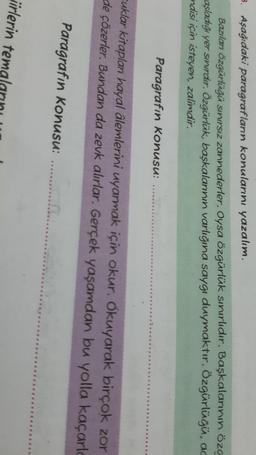 3. Aşağıdaki paragrafların konularını yazalım.
Bazıları özgürlüğü sınırsız zannederler. Oysa özgürlük sınırlıdır. Başkalarının özg
aşladığı yer sınırdır. Özgürlük, başkalarının varlığına saygı duymaktır. Özgürlüğü, ac
ndisi için isteyen, zalimdir.
Paragrafın Konusu: ..............................
cuklar kitapları hayal âlemlerini uyarmak için okur. Okuyarak birçok zor
de çözerler. Bundan da zevk alırlar. Gerçek yaşamdan bu yolla kaçarla
Paragrafın Konusu: ..............................
iirlerin temalarını